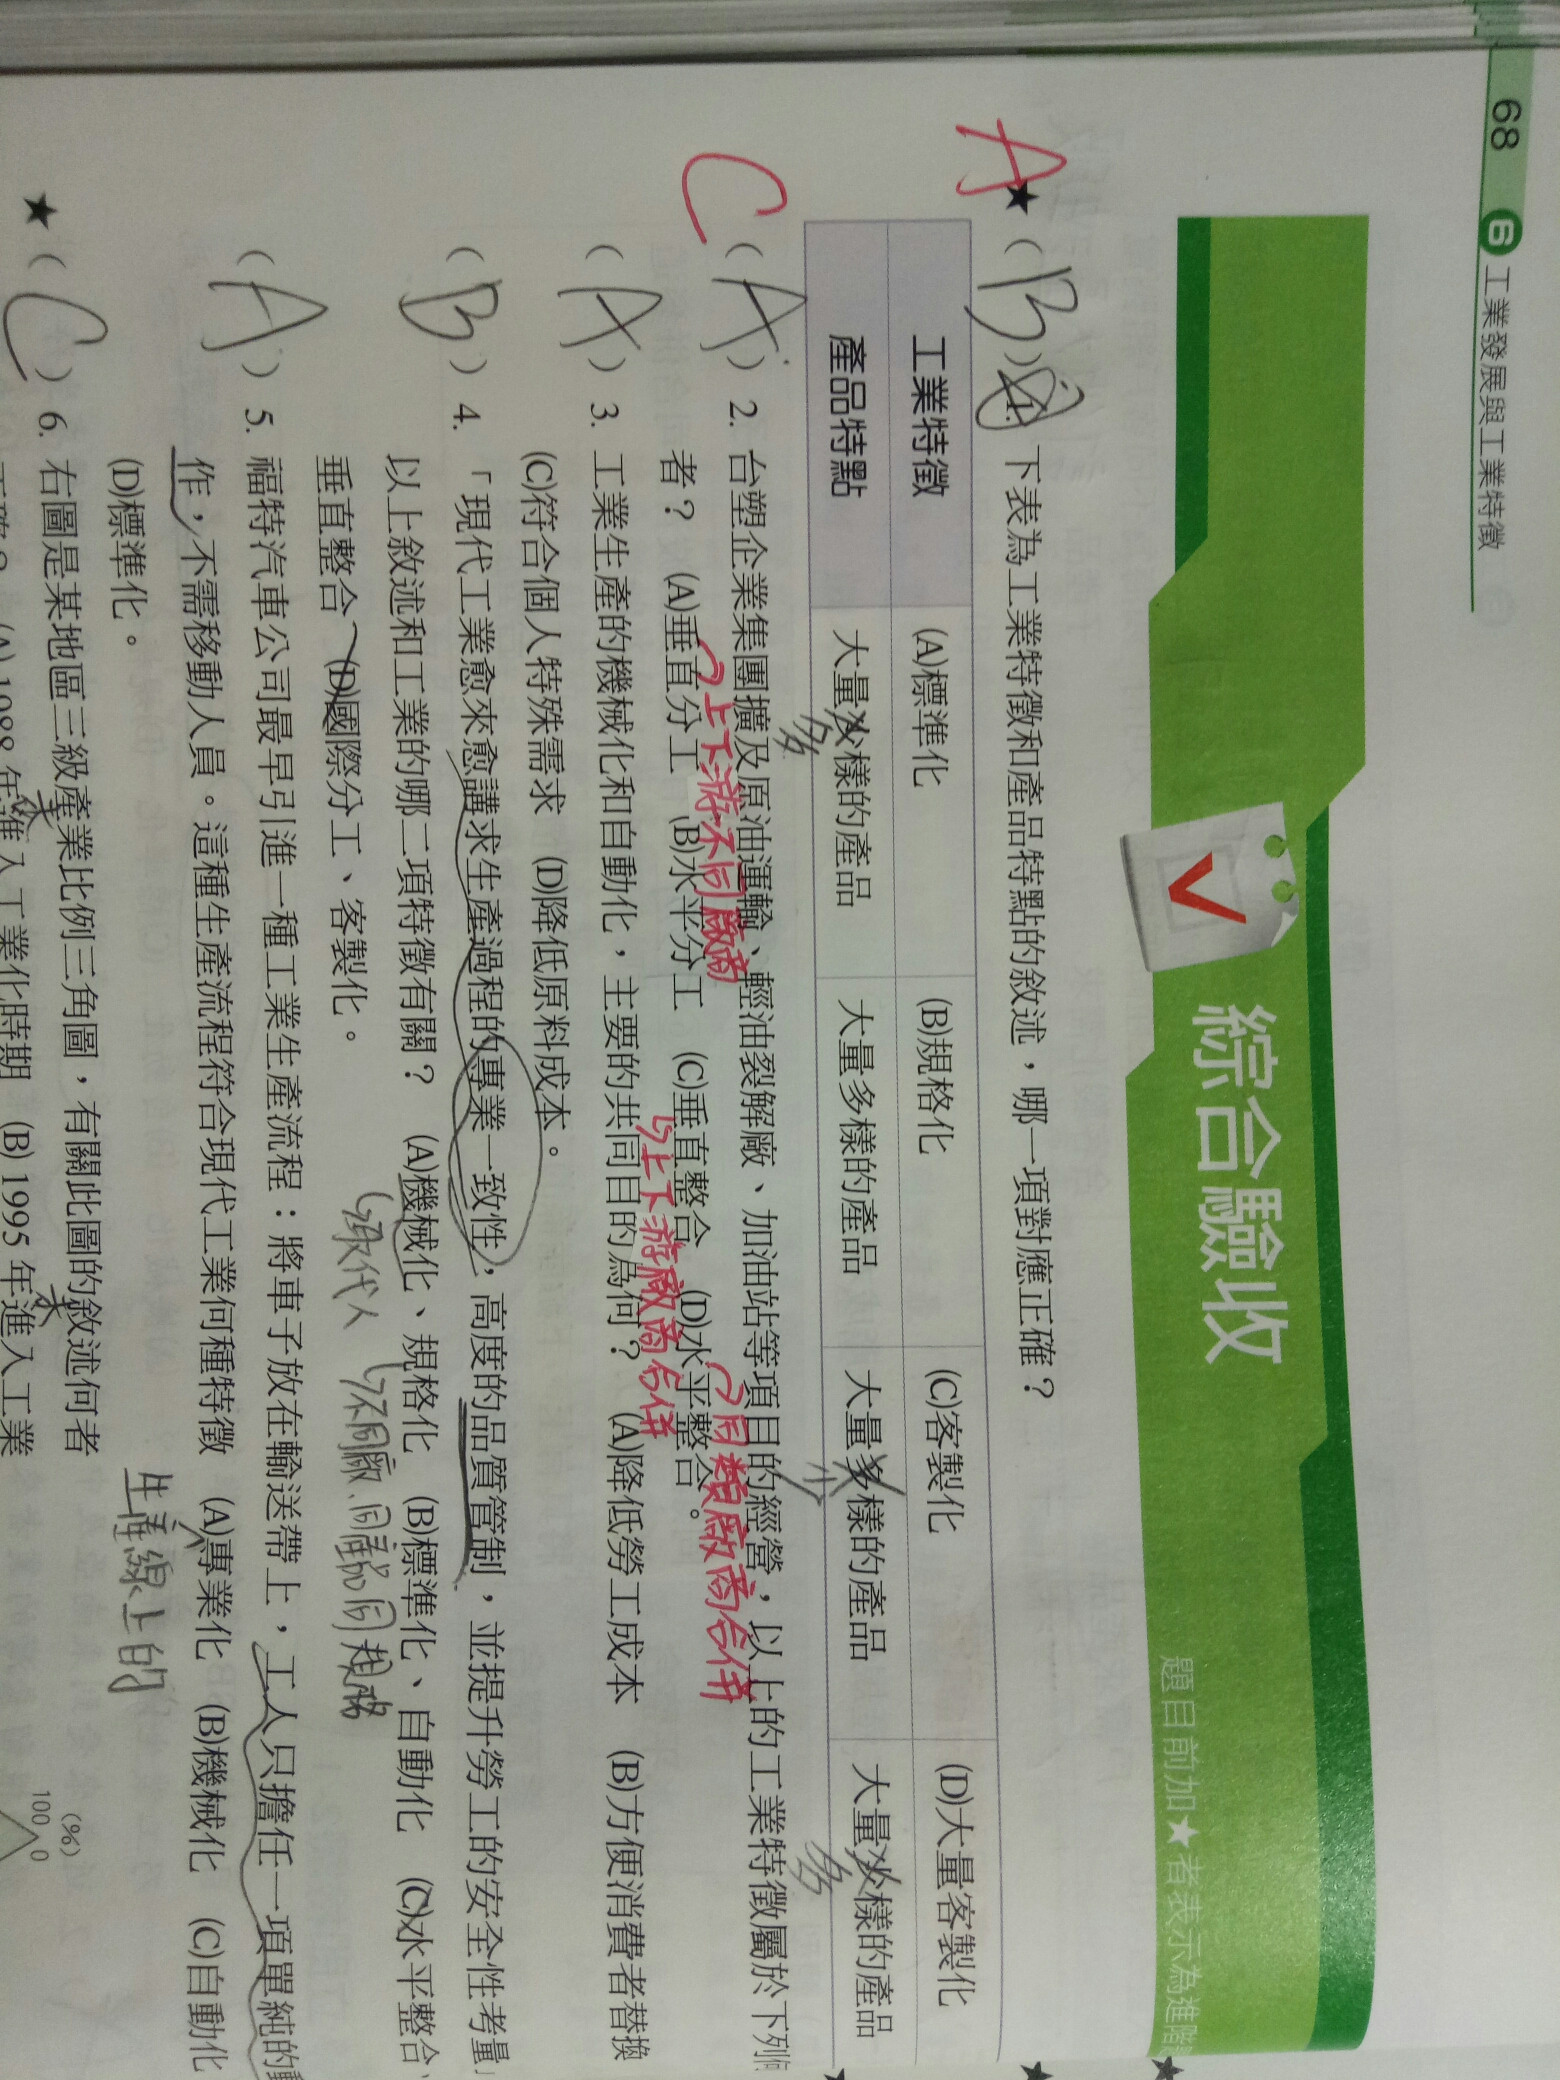 68 6 工業發展與工業特徵
綜合驗收
題目前加★者表示為進階
A
★(B)1. 下表為工業特徵和產品特點的敘述，哪一項對應正確？
工業特徵 (A)標準化 (B)規格化 (C)客製化 (D)大量客製化
產品特點 大量少樣的產品 大量多樣的產品 大量多樣的產品 大量少樣的產品
多 少 多
C
(A) 2. 台塑企業集團擴及原油運輸、輕油裂解廠、加油站等項目的經營，以上的工業特徵屬於下列何
上下游不同廠商 同類廠商合併
者？ (A)垂直分工 (B)水平分工 (C)垂直整合 (D)水平整合。
上下游廠商合併
(A) 3. 工業生產的機械化和自動化，主要的共同目的為何？ (A)降低勞工成本 (B)方便消費者替換
(C)符合個人特殊需求 (D)降低原料成本。
(B) 4. 「現代工業愈來愈講求生產過程的專業一致性，高度的品質管制，並提升勞工的安全性考量」
以上敘述和工業的哪二項特徵有關？ (A)機械化、規格化 (B)標準化、自動化 (C)水平整合、
取代人 不同廠、同產品同規格
垂直整合 (D)國際分工、客製化。
(A) 5. 福特汽車公司最早引進一種工業生產流程：將車子放在輸送帶上，工人只擔任一項單純的動
作，不需移動人員。這種生產流程符合現代工業何種特徵 (A)專業化 (B)機械化 (C)自動化
生產線上的
(D)標準化。
★(C) 6. 右圖是某地區三級產業比例三角圖，有關此圖的敘述何者
(%)
100 0
正確？ (A) 1988 年進入工業化時期 (B) 1995 年進入工業